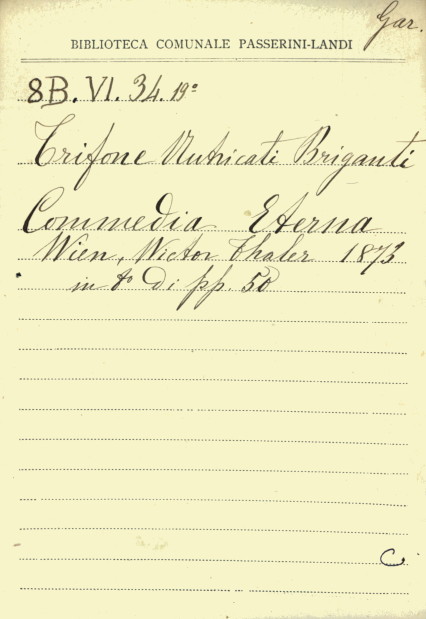 Gar.
BIBLIOTECA COMUNALE PASSERINI-LANDI
8B. VI. 34. 19º
Trifone Nutricati Briganti
Commedia Eterna
Wien, Wictor Thaler 1873
in 8º di pp. 50
C